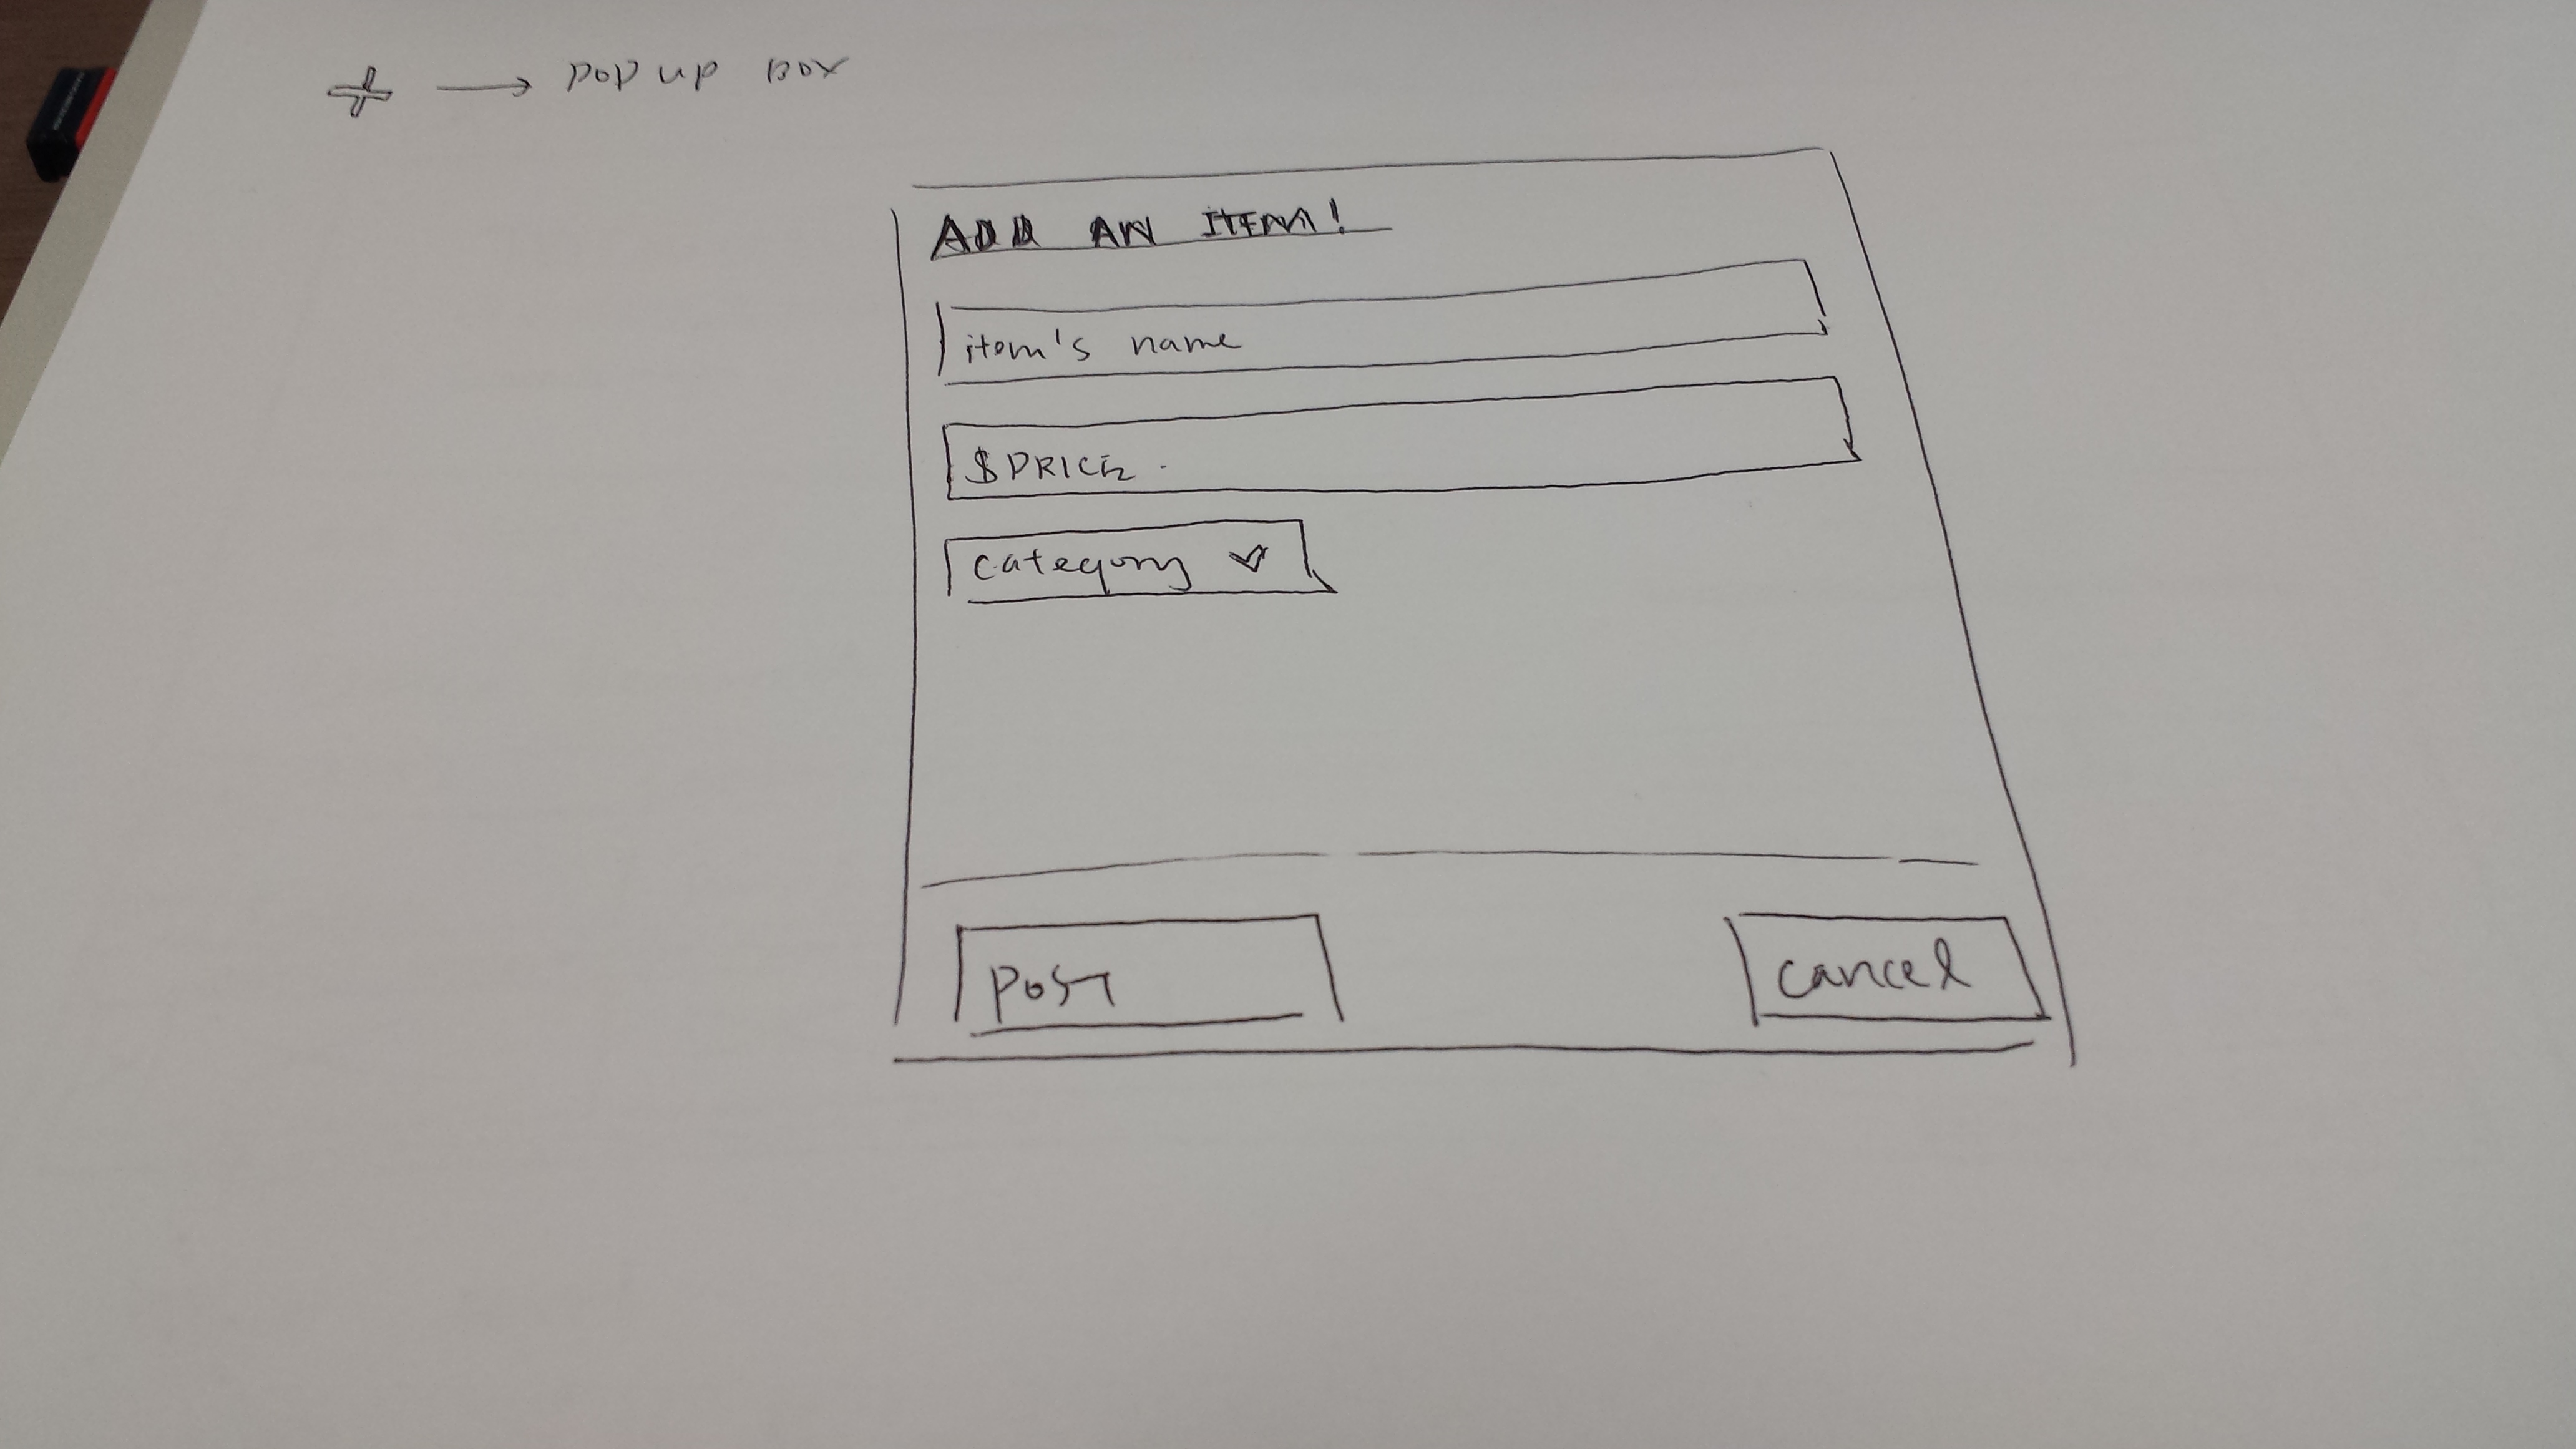 + → pop up box
ADD AN ITEM!
item's name
$PRICE
category
POST
cancel